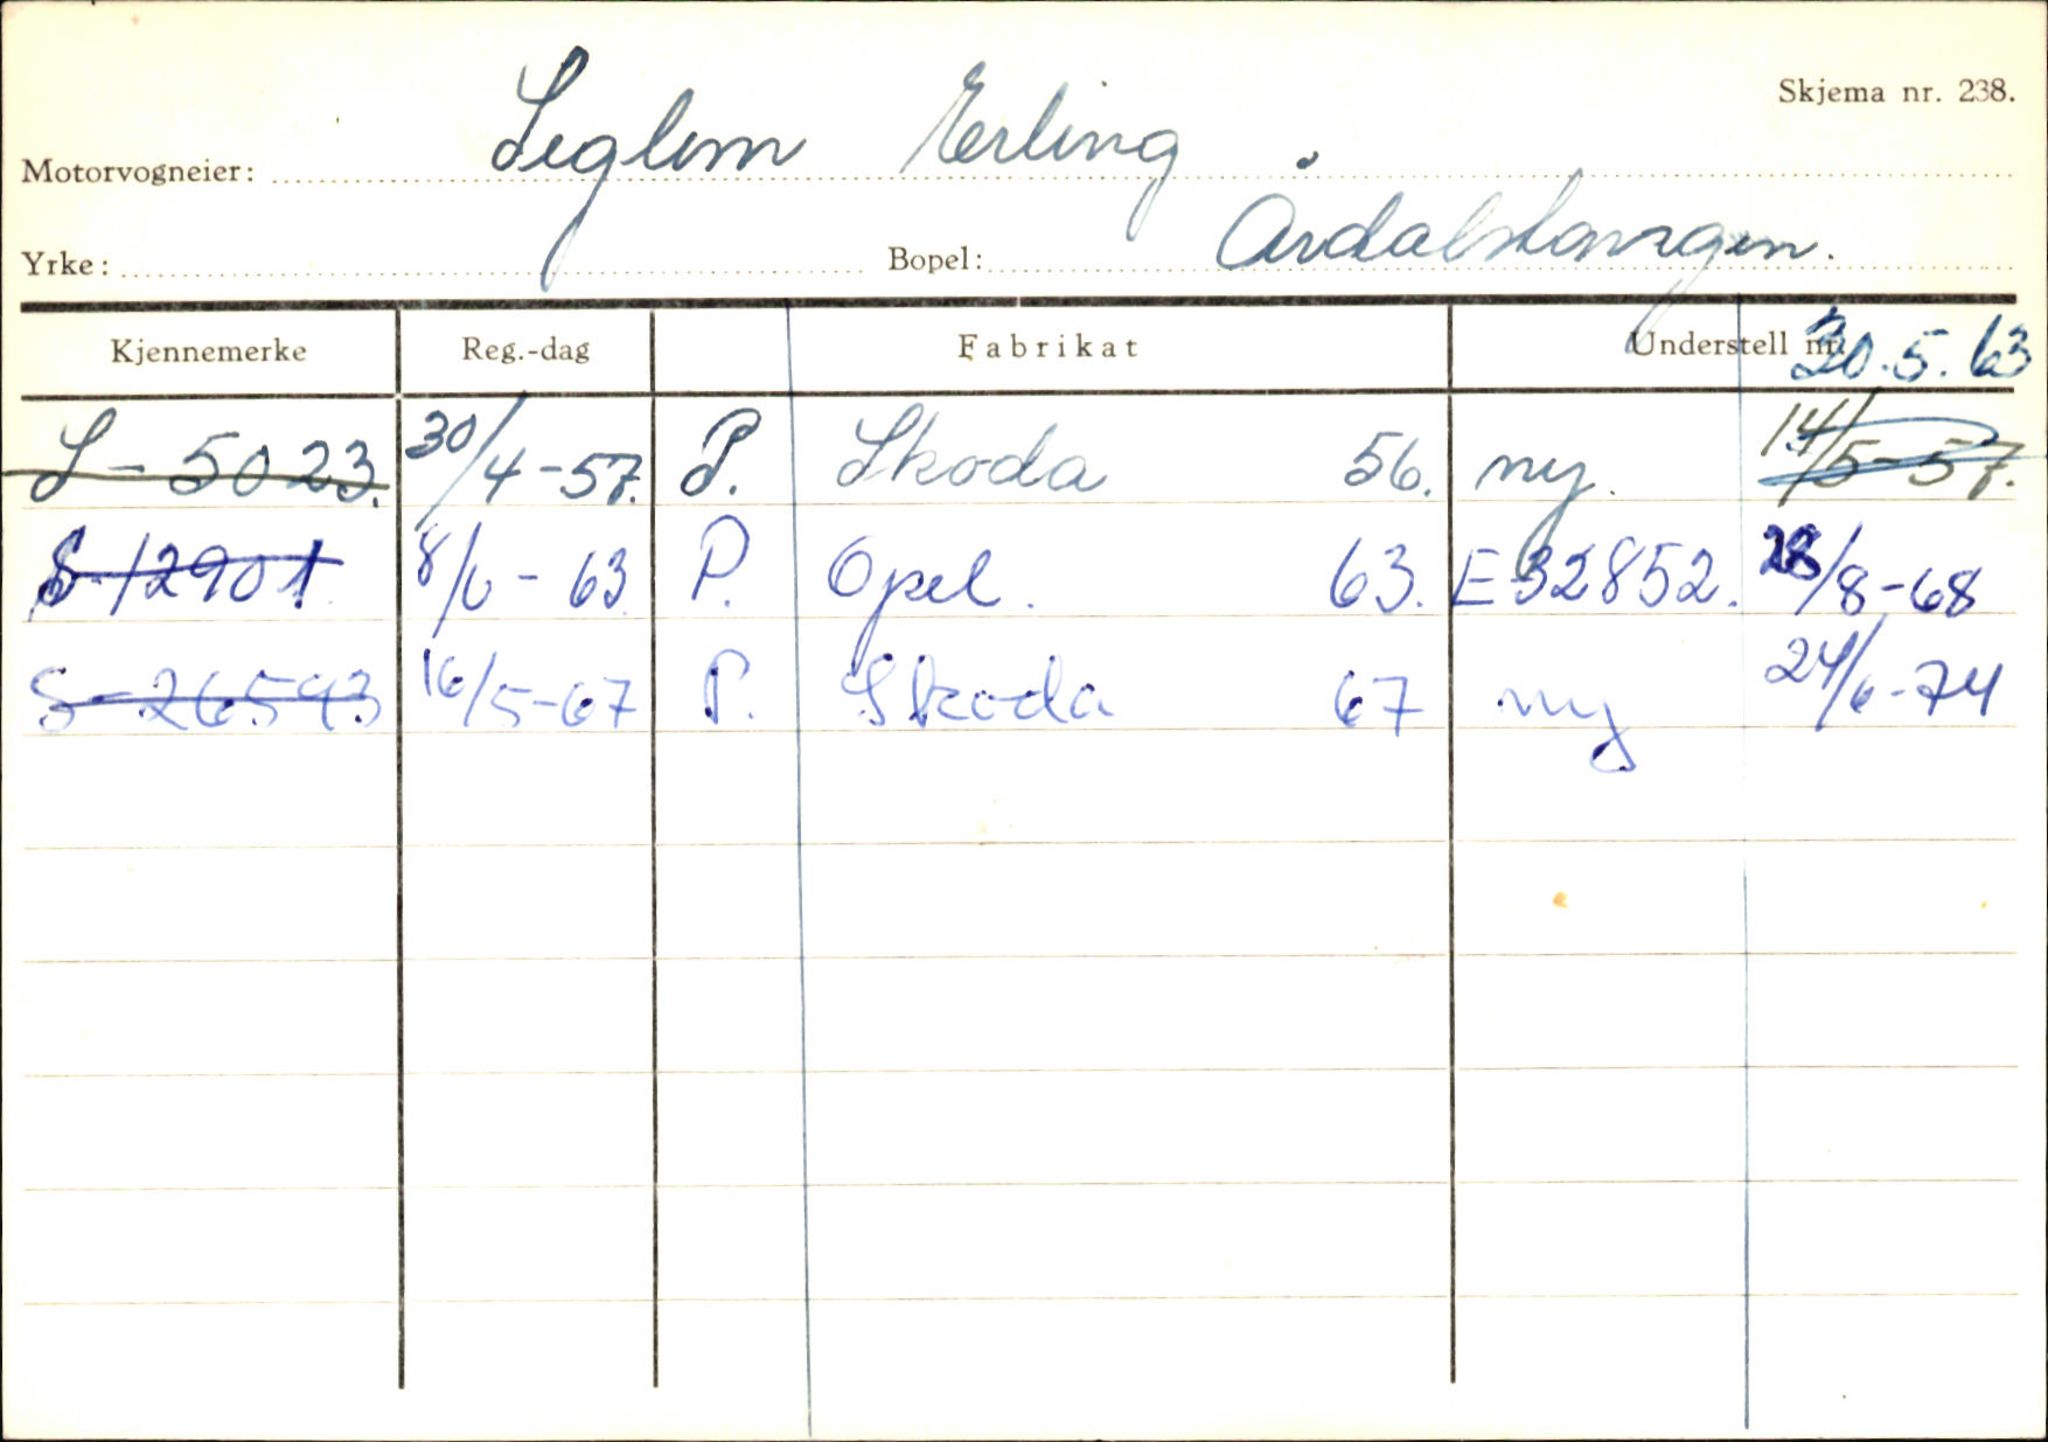 Skjema nr. 238.
Motorvogneier: Seglem Erling
Yrke: Bopel: Årdalstangen.
Kjennemerke Reg.-dag Fabrikat Understell nr. 30.5.63
S-5023. 30/4-57. P. Skoda 56. ny. 14/5-57.
S-12901 8/6-63 P. Opel. 63. E32852. 28/8-68
S-26593 16/5-67 P. Skoda 67 ny 24/6-74